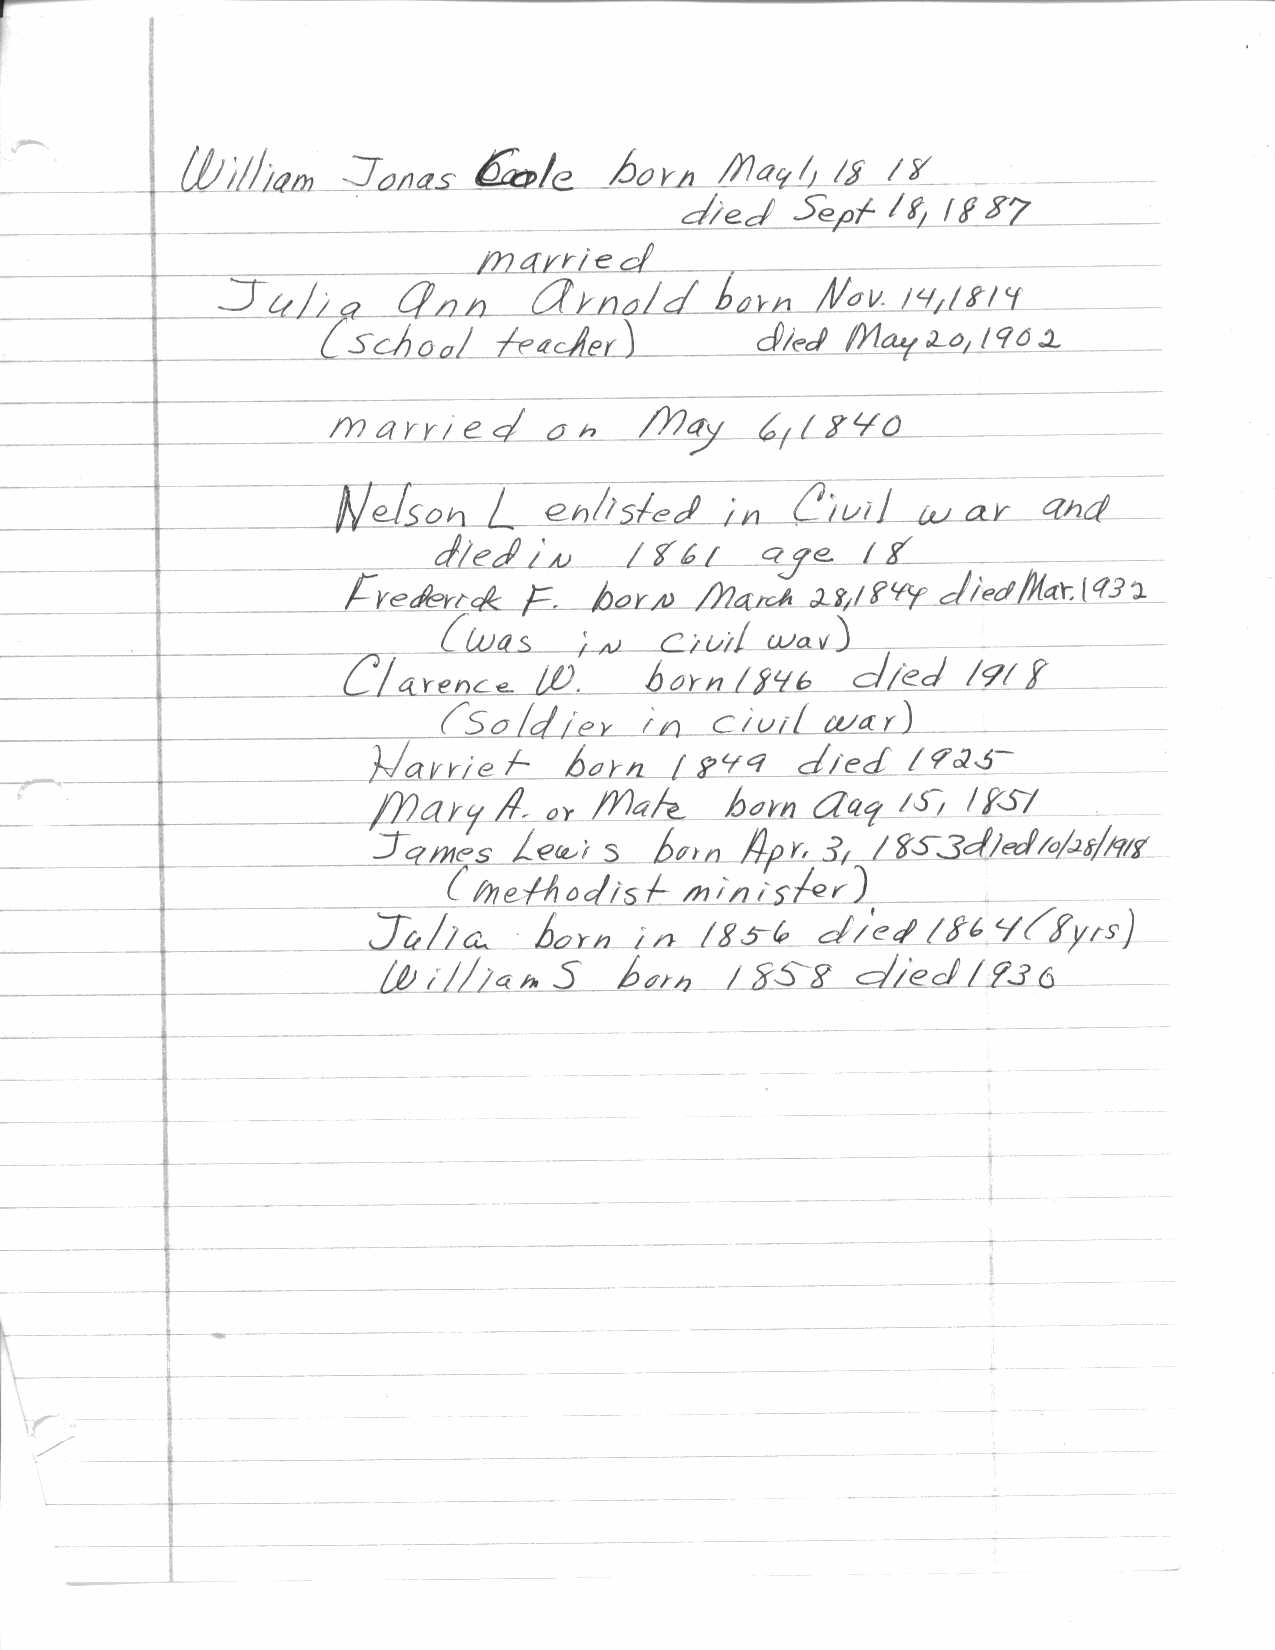 William Jonas born May 1, 18 18
died Sept 18, 1887
married
Julia Ann Arnold born Nov. 14, 1814
(school teacher) died May 20, 1902
married on May 6, 1840
Nelson L enlisted in Civil war and
died in 1861 age 18
Frederick F. born March 28, 1844 died Mar. 1932
(was in civil war)
Clarence W. born 1846 died 1918
(Soldier in civil war)
Harriet born 1849 died 1925
Mary A. or Mate born Aug 15, 1851
James Lewis born Apr. 3, 1853 died 10/28/1918
(methodist minister)
Julia born in 1856 died 1864 (8yrs)
William S born 1858 died 1936